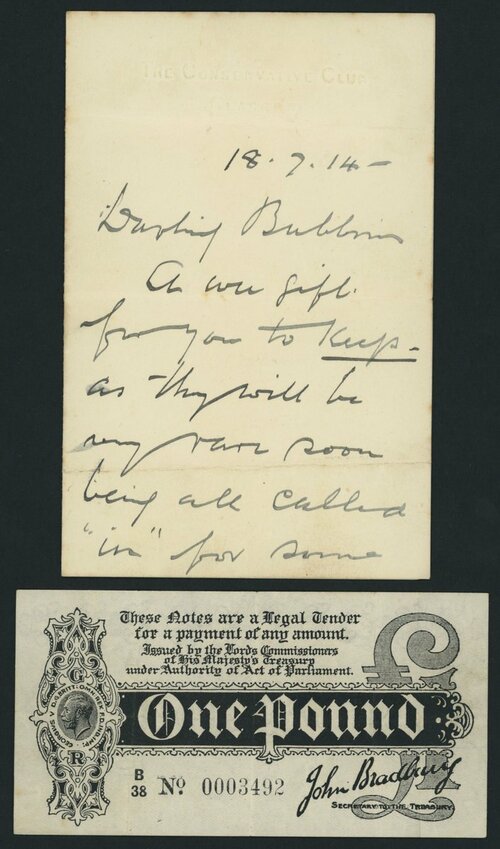 THE CONSERVATIVE CLUB
18.9.14-
Darling Bubbins
A wee gift
for you to keep-
as they will be
very rare soon
being all called
"in" for some
These Notes are a Legal Tender
for a payment of any amount.
Issued by the Lords Commissioners
of His Majesty's Treasury
under Authority of Act of Parliament.
G
One Pound
R
B
38 No 0003492
John Bradbury
SECRETARY TO THE TREASURY.
£1